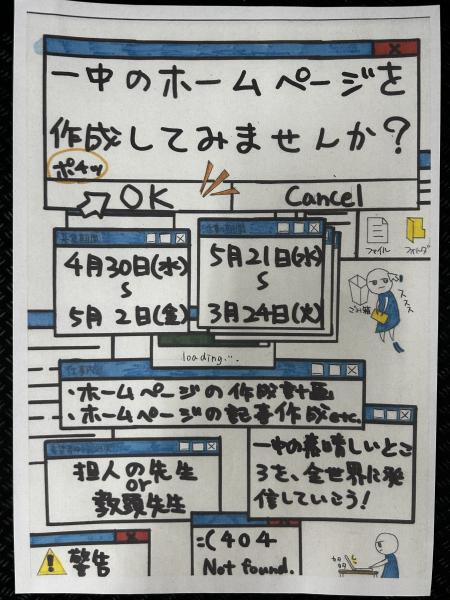 一中のホームページを
作成してみませんか？
ポチッ
OK
Cancel
募集期間
4月30日(水)
～
5月2日(金)
仕事期間
5月21日(水)
～
3月24日(火)
ファイル
フォルダ
ゴミ箱
スススス
loading...
仕事内容
・ホームページの作成計画
・ホームページの記事作成etc.
担人の先生
or
教頭先生
一中の素晴しいとこ
ろを、全世界に発
信していこう！
警告
=( 404
Not found.